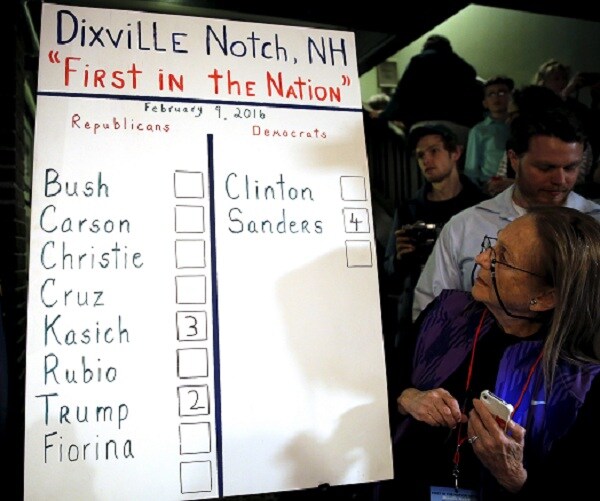 Dixville Notch, NH
"First in the Nation"
February 9, 2016
Republicans
Democrats
Bush
Carson
Christie
Cruz
Kasich 3
Rubio
Trump 2
Fiorina
Clinton
Sanders 4